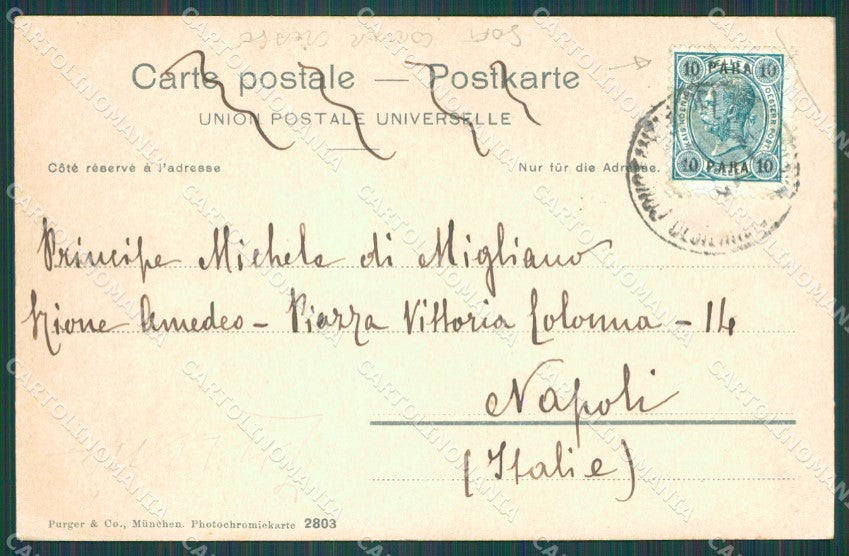 Carte postale — Postkarte
UNION POSTALE UNIVERSELLE
Côté réservé à l'adresse
Nur für die Adresse.
10 PARA 10
10 PARA 10
Principe Michele di Migliano
Rione Amedeo - Piazza Vittoria Colonna - 14
Napoli
(Italie)
Purger & Co., München. Photochromiekarte 2803
CARTOLINOMANIA